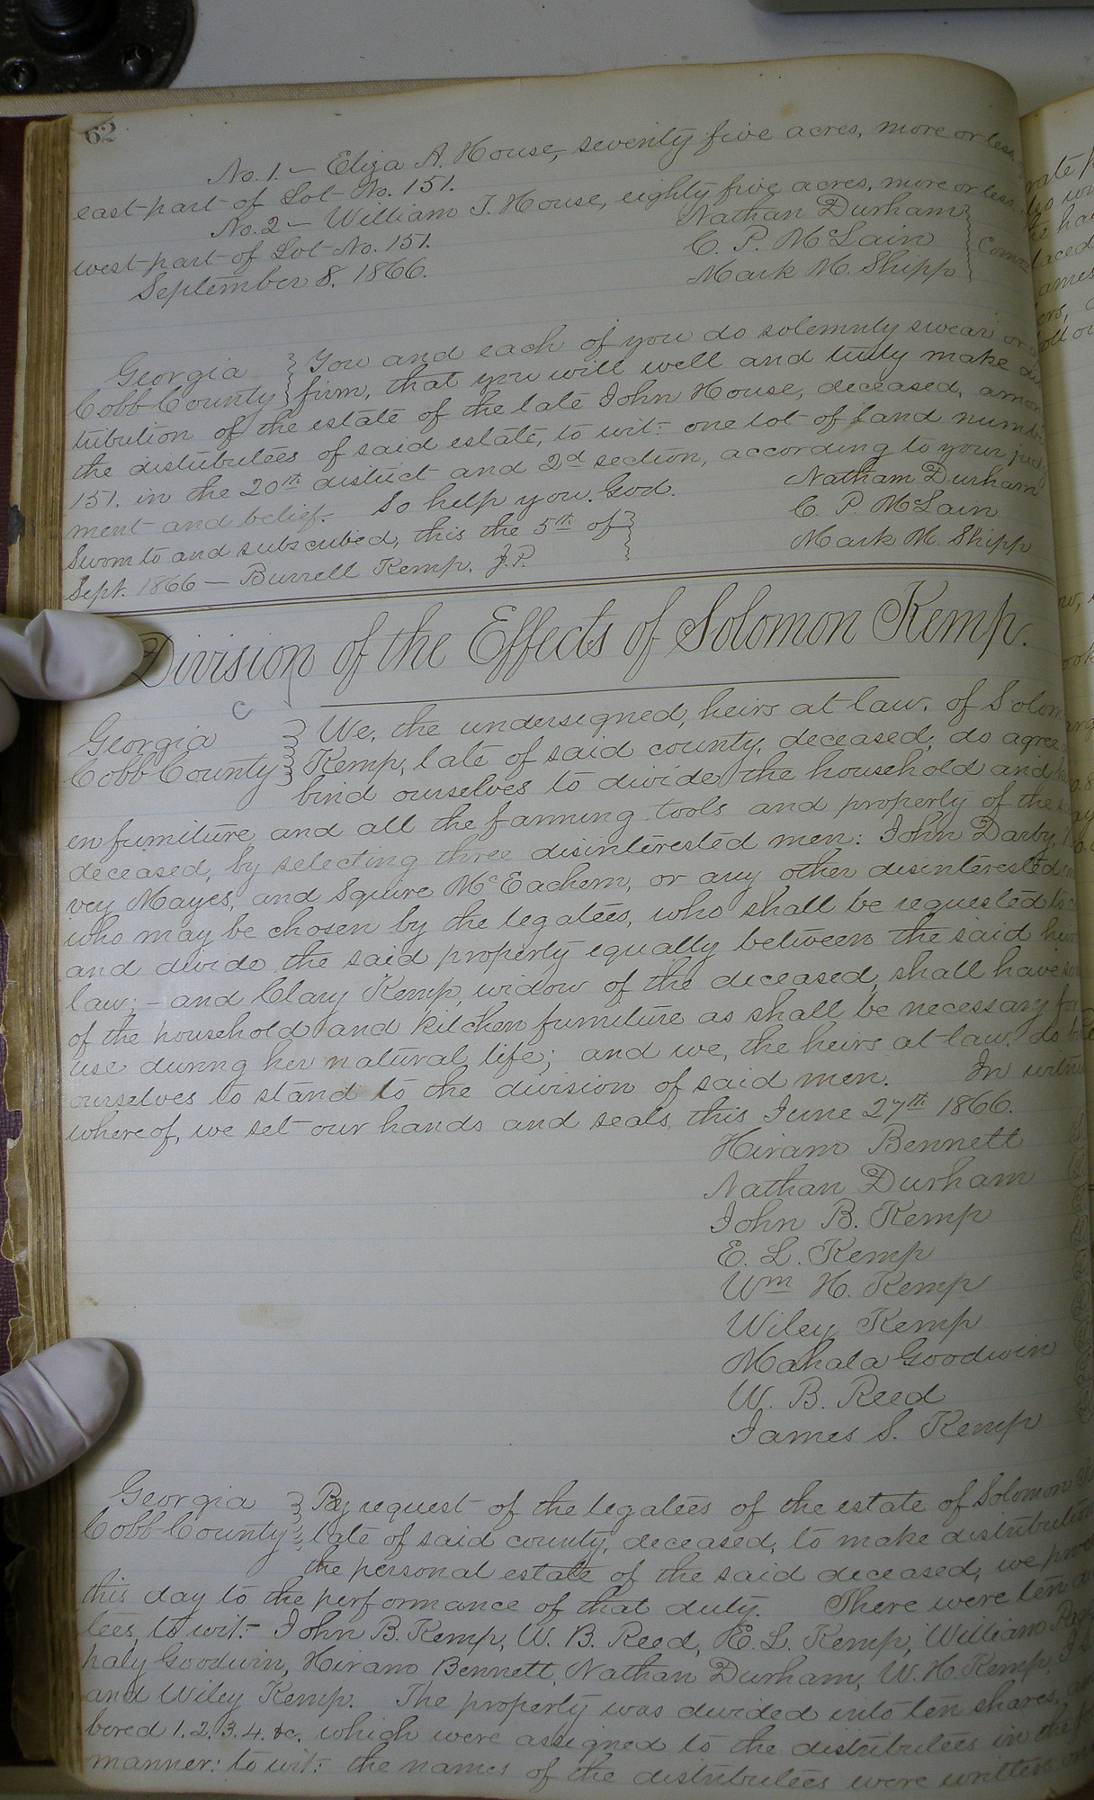 62
No. 1. — Eliza A. House, seventy five acres, more or less,
east part of Lot No. 151.
No. 2 — William T. House, eighty five acres, more or less,
west part of Lot No. 151.
September 8, 1866.
Nathan Durham
C. P. McLain
Mark M. Shipp
Georgia
Cobb County
You and each of you do solemnly swear or
firm, that you will well and truly make dis
tribution of the estate of the late John House, deceased, amon
the distributees of said estate, to wit: one lot of land numb
151. in the 20th district and 2d section, according to your jud
ment and belief. So help you God.
Sworn to and subscribed, this the 5th of
Sept. 1866 — Burrell Kemp, J.P.
Nathan Durham
C. P. McLain
Mark M. Shipp
Division of the Effects of Solomon Kemp.
Georgia
Cobb County
We, the undersigned, heirs at law, of Solom
Kemp, late of said county, deceased, do agree
bind ourselves to divide the household and
en furniture and all the farming tools and property of the
deceased, by selecting three disinterested men: John Darby,
vey Mayes, and Squire McEachern, or any other disinterested
who may be chosen by the legatees, who shall be requested to
and divide the said property equally between the said heirs
law; — and Clary Kemp, widow of the deceased, shall have
of the household and kitchen furniture as shall be necessary for
use during her natural life; and we, the heirs at law, do
ourselves to stand to the division of said men. In witness
whereof, we set our hands and seals, this June 27th 1866.
Hiram Bennett
Nathan Durham
John B. Kemp
E. L. Kemp
Wm H. Kemp
Wiley Kemp
Mahala Goodwin
W. B. Reed
James S. Kemp
Georgia
Cobb County
By request of the legatees of the estate of Solomon
late of said county, deceased, to make distribution
the personal estate of the said deceased, we
this day to the performance of that duty. There were ten
tees, to wit: — John B. Kemp, W. B. Reed, E. L. Kemp, William
haly Goodwin, Hiram Bennett, Nathan Durham, W. H. Kemp,
and Wiley Kemp. The property was divided into ten shares,
bered 1. 2. 3. 4. &c. which were assigned to the distributees in the
manner: to wit: the names of the distributees were written